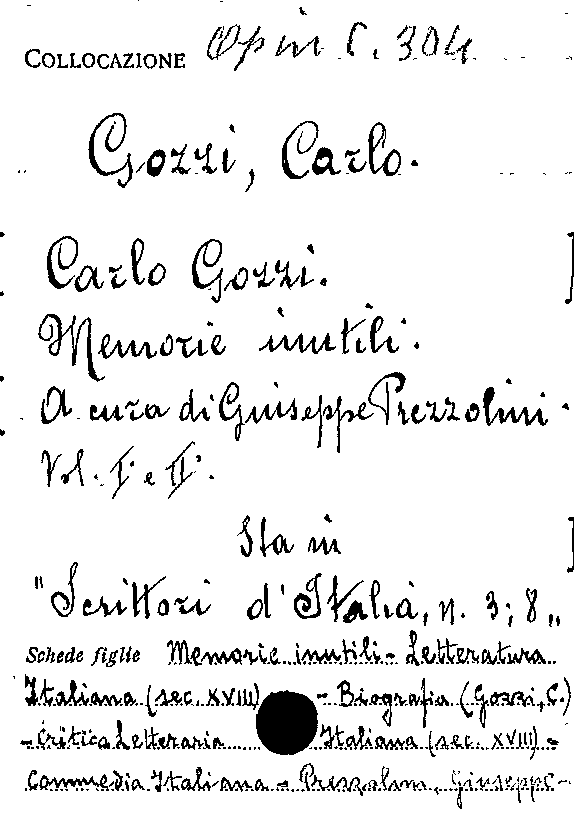 COLLOCAZIONE Op in C. 304
Gozzi, Carlo.
Carlo Gozzi.
Memorie inutili.
A cura di Giuseppe Prezzolini.
Vol. I° e II°.
Sta in
"Scrittori d'Italia, n. 3; 8„
Schede figlie Memorie inutili - Letteratura
Italiana (sec. XVIII) - Biografia (Gozzi, C.)
- Critica Letteraria Italiana (sec. XVIII) -
Commedia Italiana - Prezzolini, Giuseppe -